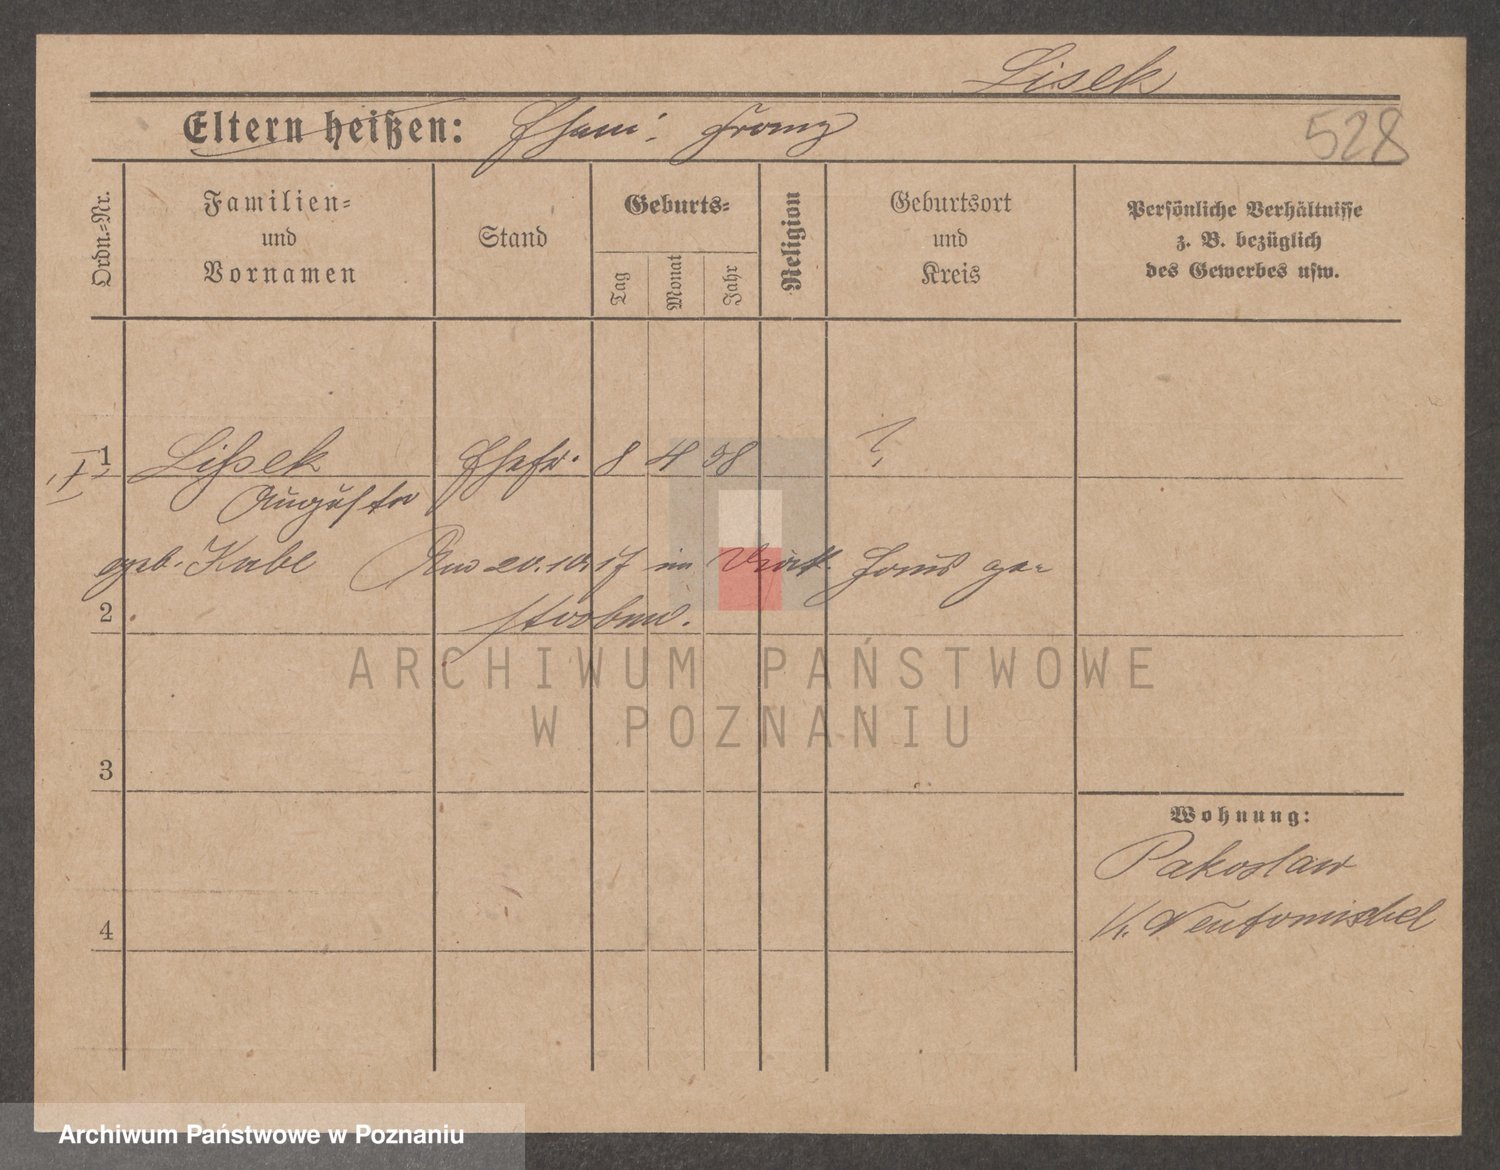 Lisek
Eltern heißen: Ehem. Franz
528
Ordn.-Nr.
Familien-
und
Vornamen
Stand
Geburts-
Tag
Monat
Jahr
Religion
Geburtsort
und
Kreis
Persönliche Verhältnisse
z. B. bezüglich
des Gewerbes usw.
1 Lißek Ehefr. 8 4 58 ?
I
Augusta
geb. Kabl Am 20.10.17 im Krk. Haus ge-
2 storben.
ARCHIWUM PAŃSTWOWE
W POZNANIU
3
Wohnung:
Pakoslaw
K. Neutomischel
4
Archiwum Państwowe w Poznaniu